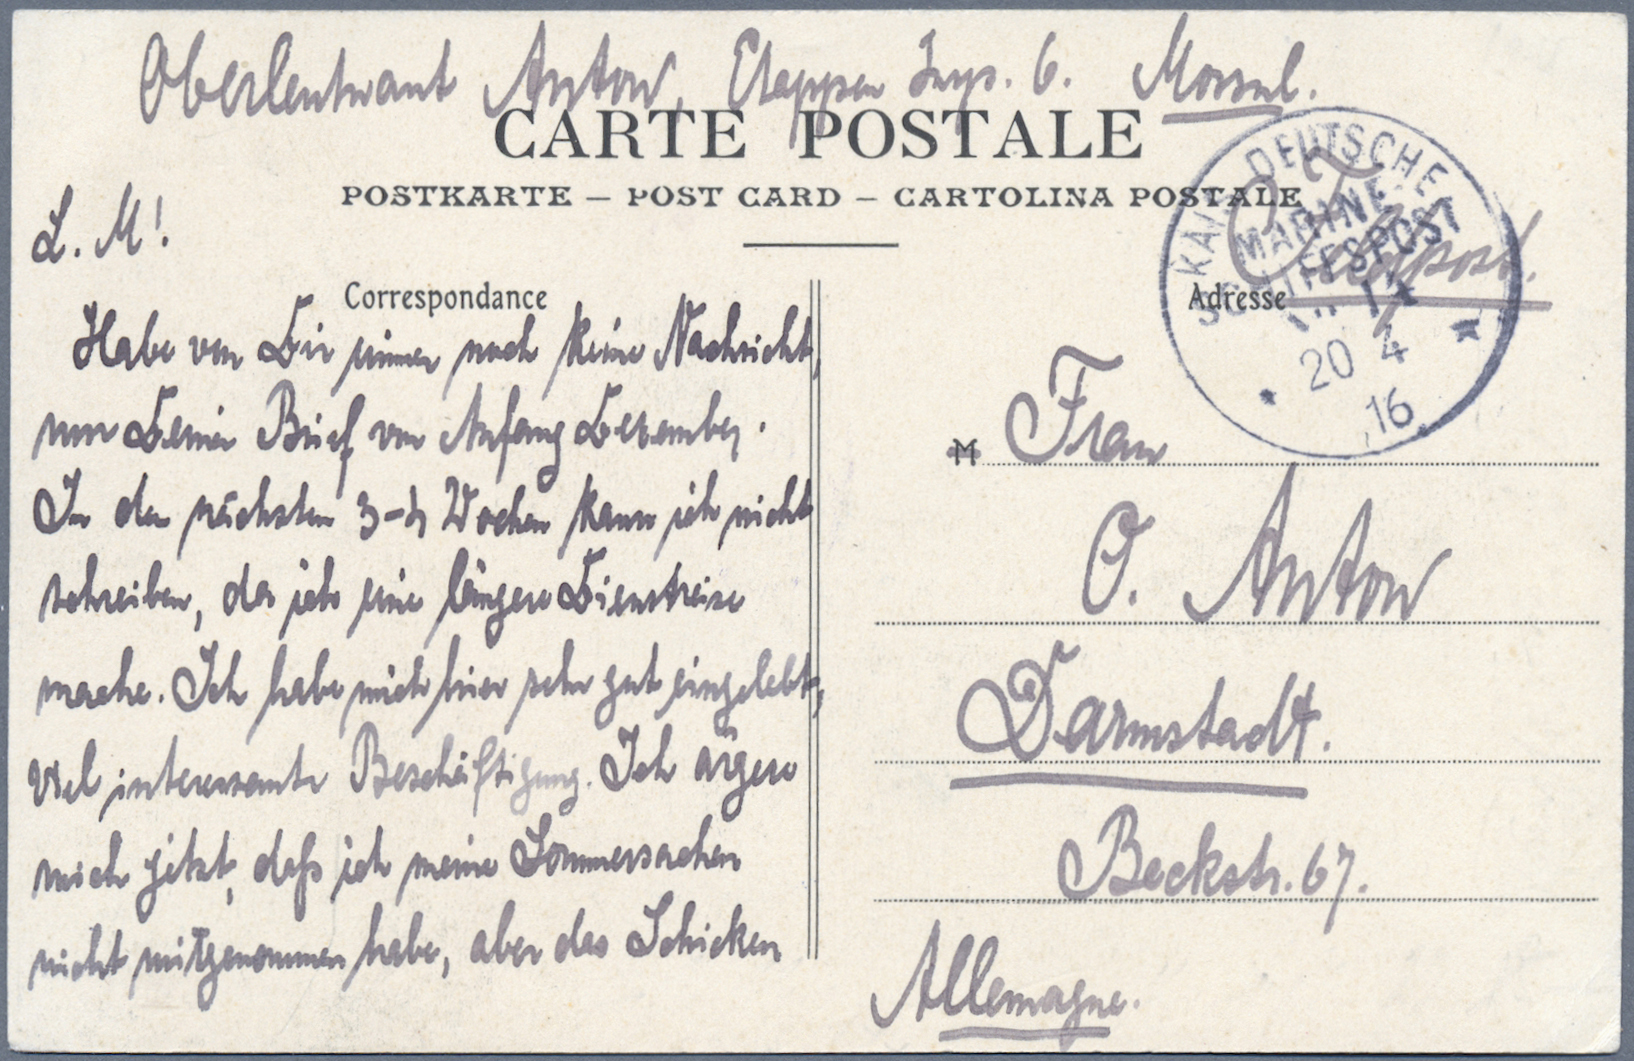 Oberleutnant Anton, Etappen Insp. 6. Mossul.
CARTE POSTALE
POSTKARTE – POST CARD – CARTOLINA POSTALE
KAIS. DEUTSCHE
MARINE-
SCHIFFSPOST
20 4
16
Feldpost.
L. M!
Correspondance
Habe von Dir immer noch keine Nachricht,
nur Deinen Brief von Anfang Dezember.
In den nächsten 3-4 Wochen kann ich nicht
schreiben, da ich eine längere Dienstreise
mache. Ich habe mich hier sehr gut eingelebt,
viel interessante Beschäftigung. Ich ärgere
mich jetzt, daß ich meine Sommersachen
nicht mitgenommen habe, aber das Schicken
Adresse
M Frau
O. Anton
Darmstadt.
Beckstr. 67.
Allemagne.